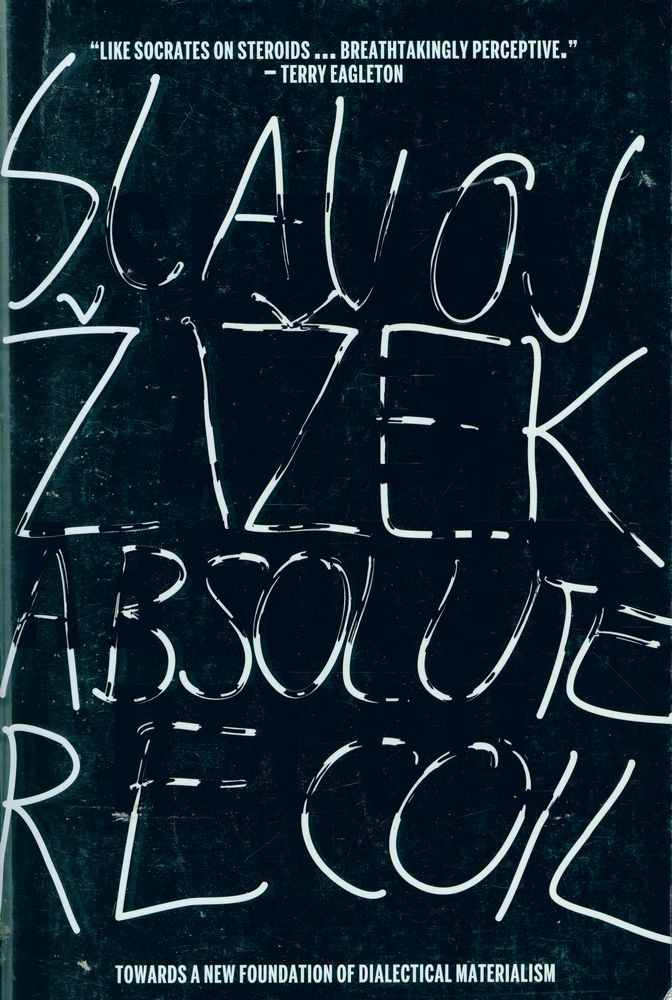 “LIKE SOCRATES ON STEROIDS ... BREATHTAKINGLY PERCEPTIVE.”
– TERRY EAGLETON
SLAVOJ
ŽIŽEK
ABSOLUTE
RECOIL
TOWARDS A NEW FOUNDATION OF DIALECTICAL MATERIALISM